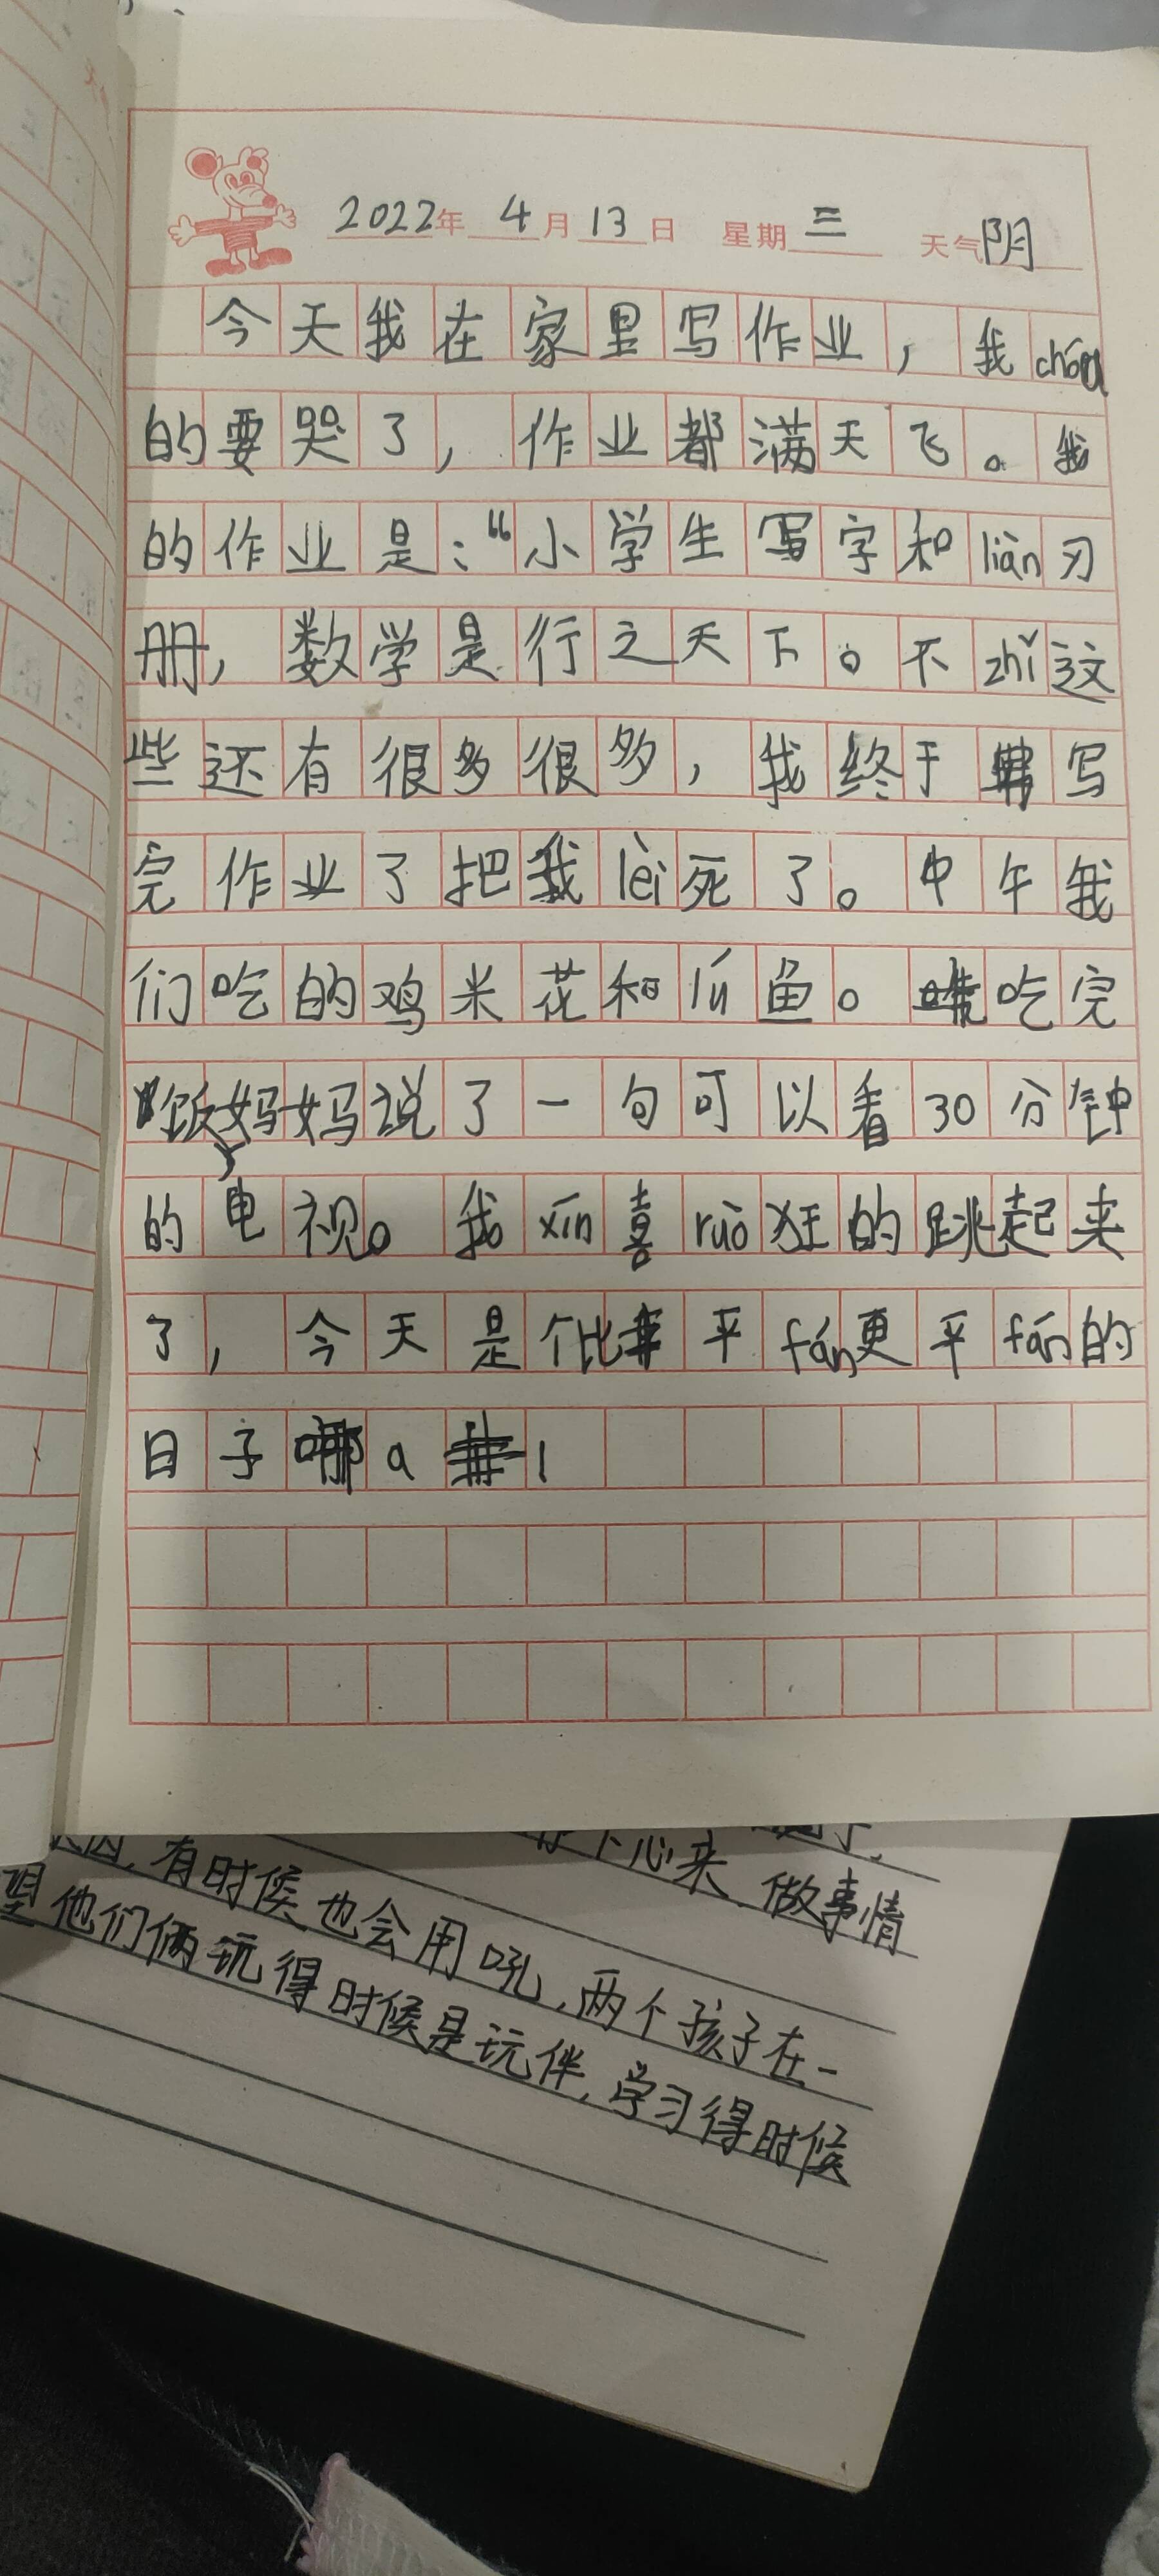 2022年 4月13日 星期三 天气阴
今天我在家里写作业，我chóu
的要哭了，作业都满天飞。我
的作业是：“小学生写字和liàn习
册，数学是行之天下。不zhǐ这
些还有很多很多，我终于写
完作业了把我lèi死了。中午我
们吃的鸡米花和lú鱼。吃完
饭妈妈说了一句可以看30分钟
的电视。我xīn喜ruò狂的跳起来
了，今天是个比平fán更平fán的
日子a！
下心来、做事情
有时候也会用吼，两个孩子在一
望他们俩玩得时候是玩伴，学习得时候